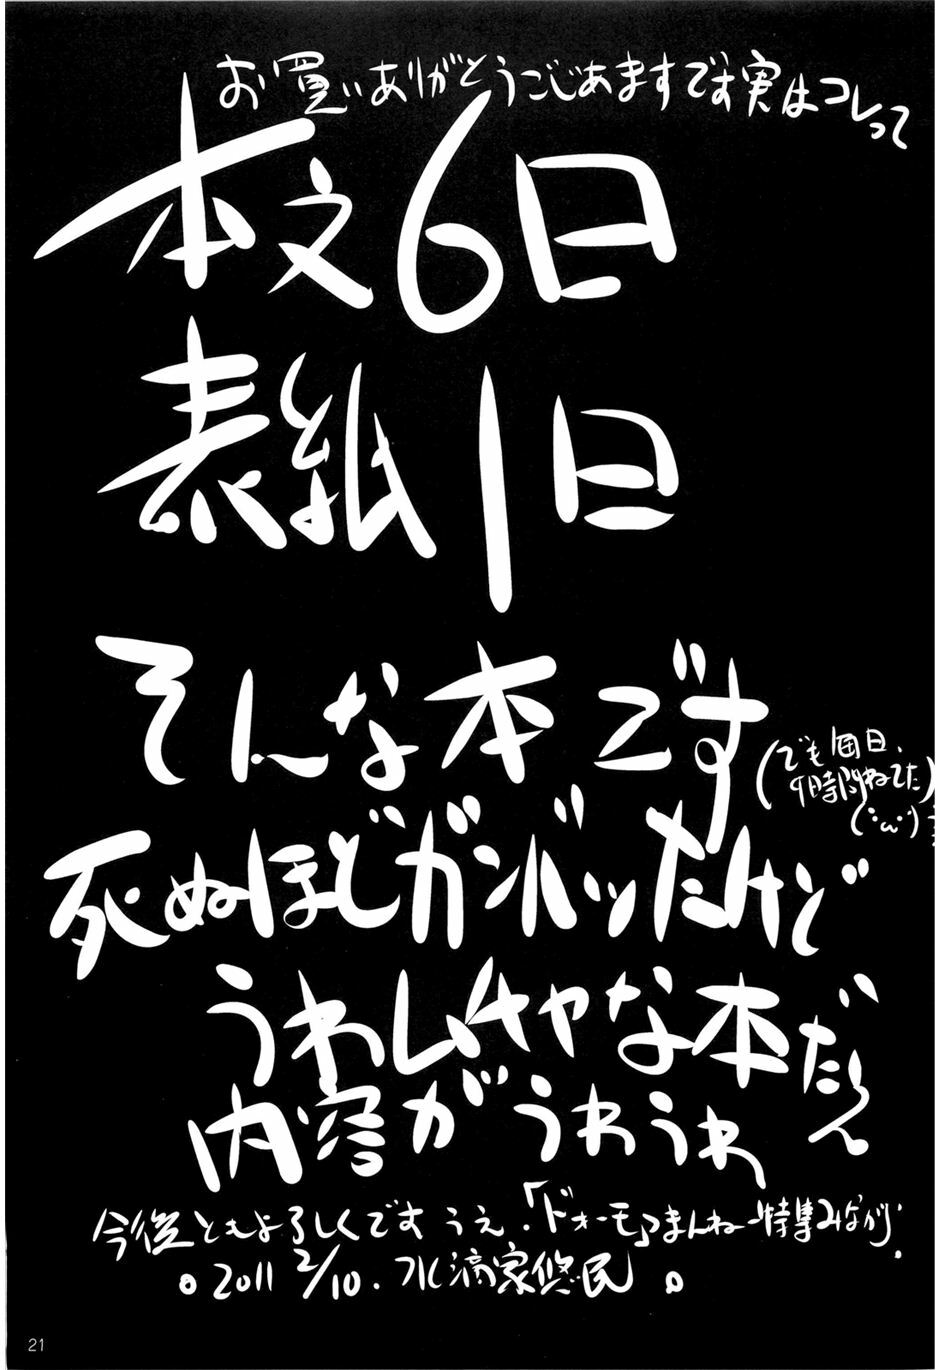 お買いありがとうごじあますです実はコレって
本文6日
表紙1日
そんな本です
(でも毎日、
9時間ねてた)
(・ω・)
死ぬほどガンバッたけど
うわムチャな本だ~ん
内容がうわうわ
今後ともよろしくですうえ.「ドォーモ」まんねー特集みながら.
。2011 2/10.水滴家悠民。
21